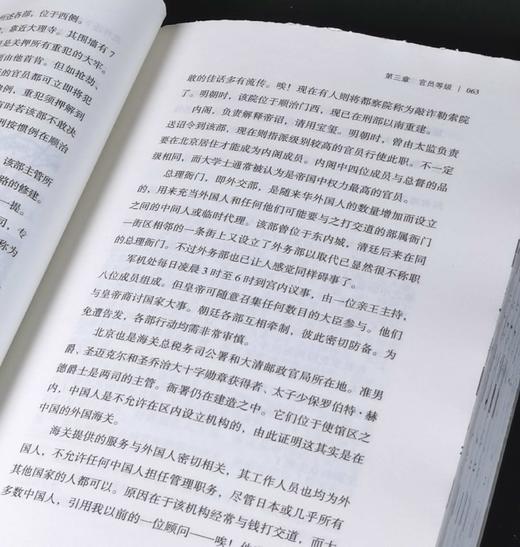 所述各部，位于西侧。
，靠近大理寺。其围墙有7
是关押所有重犯的大牢。
由他肯肯。但如抢劫、
的官员都可立即将犯
例，重犯须押解到
有时若该部不敢决
按惯例在顺治
该部主管所
路的修建。
一堤。
司，专
称为
第三章 官员等级 | 063
敢的佳话多有流传。唉！现在有人则将都察院称为敲诈勒索院
了。明朝时，该院位于顺治门西，现已在刑部以南重建。
内阁，负责解释帝诏，请用宝玺。明朝时，曾由太监负责
送诏令到该部，现在则指派级别较高的官员行使此职。不一定
要在北京居住才能成为内阁成员。内阁中四位成员与总督的品
级相同，而大学士通常被认为是帝国中权力最高的官员。
总理衙门，即外交部，是随来华外国人的数量增加而设立
的，用来充当外国人和任何他们可能要与之打交道的部属衙门
之间的中间人或临时代理。该部曾位于东内城，清廷后来在同
一街区相邻的一条街上又设立了外务部以取代已显然很不称职
的总理衙门。不过外务部也已让人感觉同样碍事了。
军机处每日凌晨3时至6时到宫内议事，由一位亲王主持，
八位成员组成。但皇帝可随意召集任何数目的大臣参与。他们
与皇帝商讨国家大事。朝廷各部互相牵制，彼此密切防备。为
免遭告发，各部行动均需非常审慎。
北京也是海关总税务司公署和大清邮政官局所在地。准男
爵、圣迈克尔和圣乔治大十字勋章获得者、太子少保罗伯特·赫
德爵士是两司的主管。衙署仍在建造之中。它们位于使馆区之
内，中国人是不允许在区内设立机构的，由此证明这其实是在
中国的外国海关。
海关提供的服务与外国人密切相关，其工作人员也均为外
国人，不允许任何中国人担任管理职务，尽管日本或几乎所有
其他国家的人都可以。原因在于该机构经常与钱打交道，而大
多数中国人，引用我以前的一位顾问——唉！